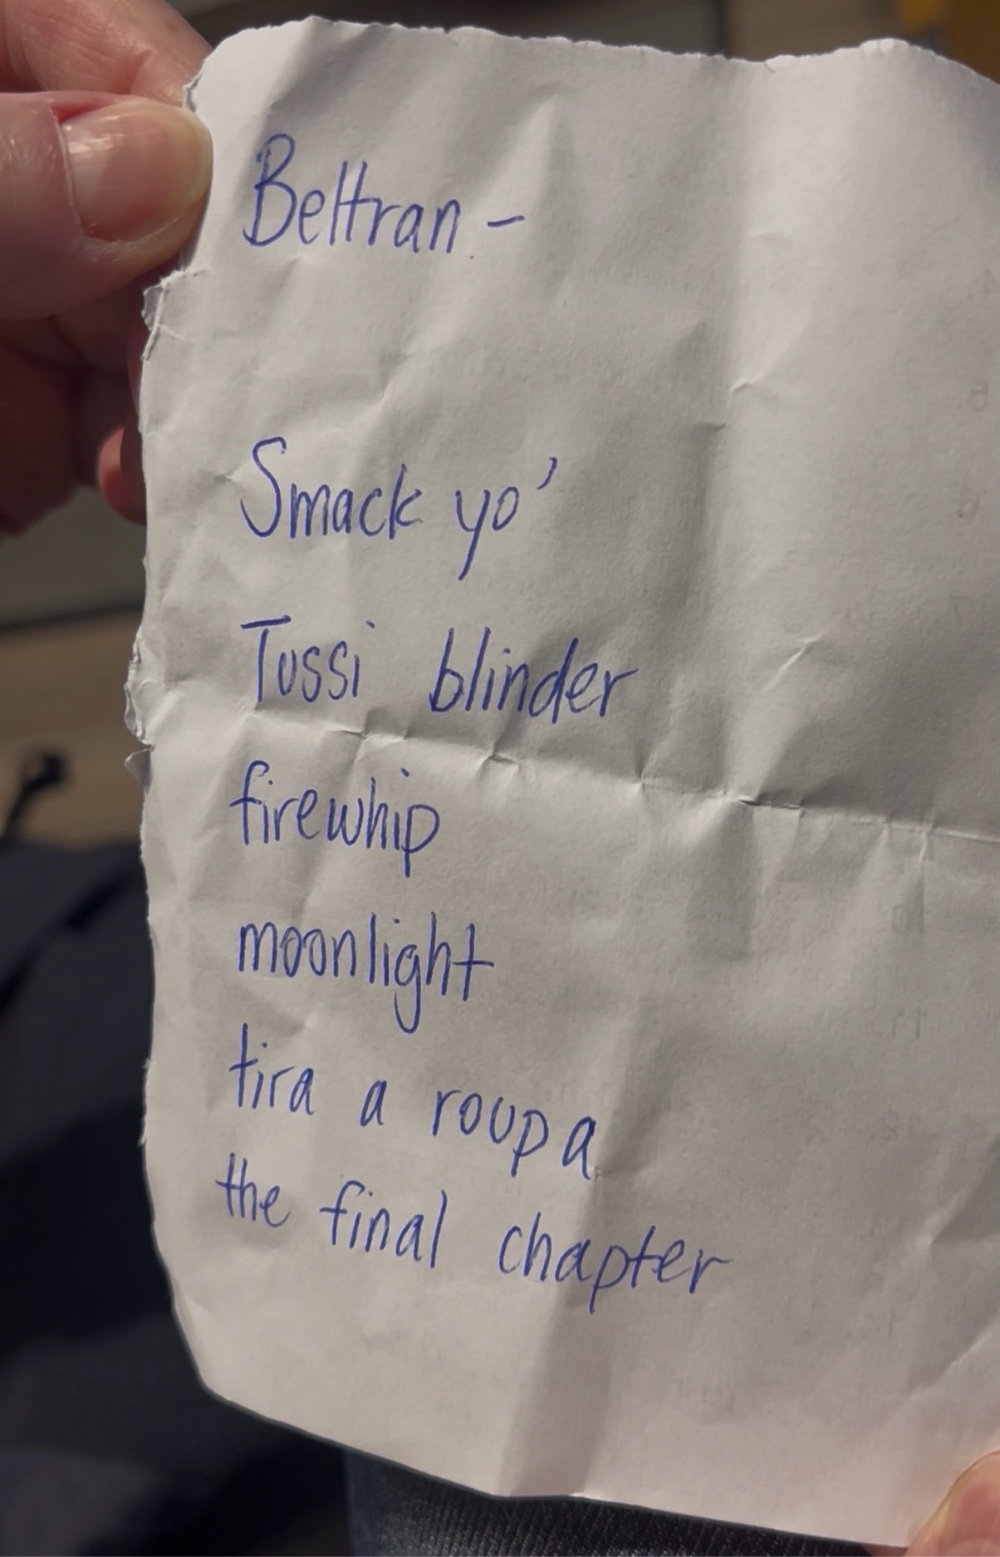 Beltran -
Smack yo'
Tussi blinder
firewhip
moonlight
tira a roupa
the final chapter